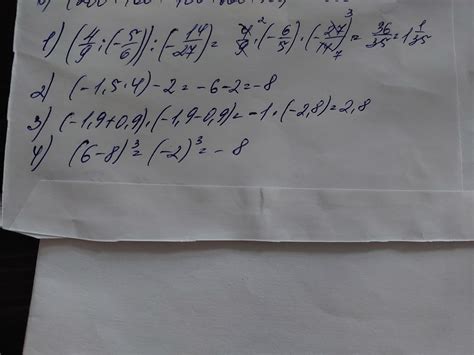 1) (4/9 : (-5/6)) : (-14/27) = 4/9 ² · (-6/5) · (-27/14 ³ ₇) = 36/35 = 1 1/35
2) (-1,5·4)-2=-6-2=-8
3) (-1,9+0,9)·(-1,9-0,9)=-1·(-2,8)=2,8
4) (6-8)³=(-2)³=-8